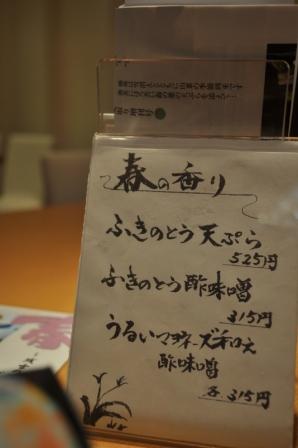 春の香り
ふきのとう天ぷら
525円
ふきのとう酢味噌
315円
うるいマヨネーズ和え
酢味噌
各315円